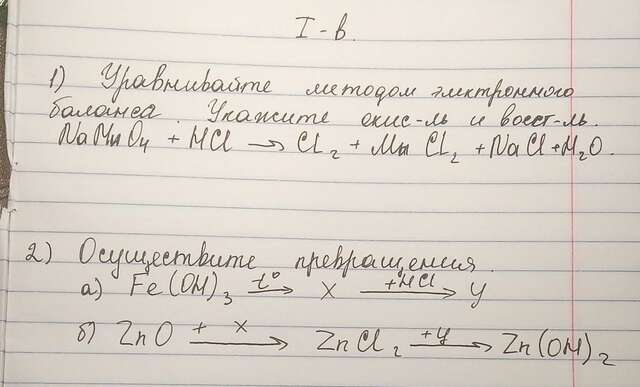 I-в.
1) Уравнивайте методом электронного
баланса. Укажите окис-ль и восст-ль.
NaMnO4 + HCl → Cl2 + MnCl2 + NaCl + H2O.
2) Осуществите превращения.
а) Fe(OH)3 t° → X +HCl → Y
б) ZnO + X → ZnCl2 +Y → Zn(OH)2